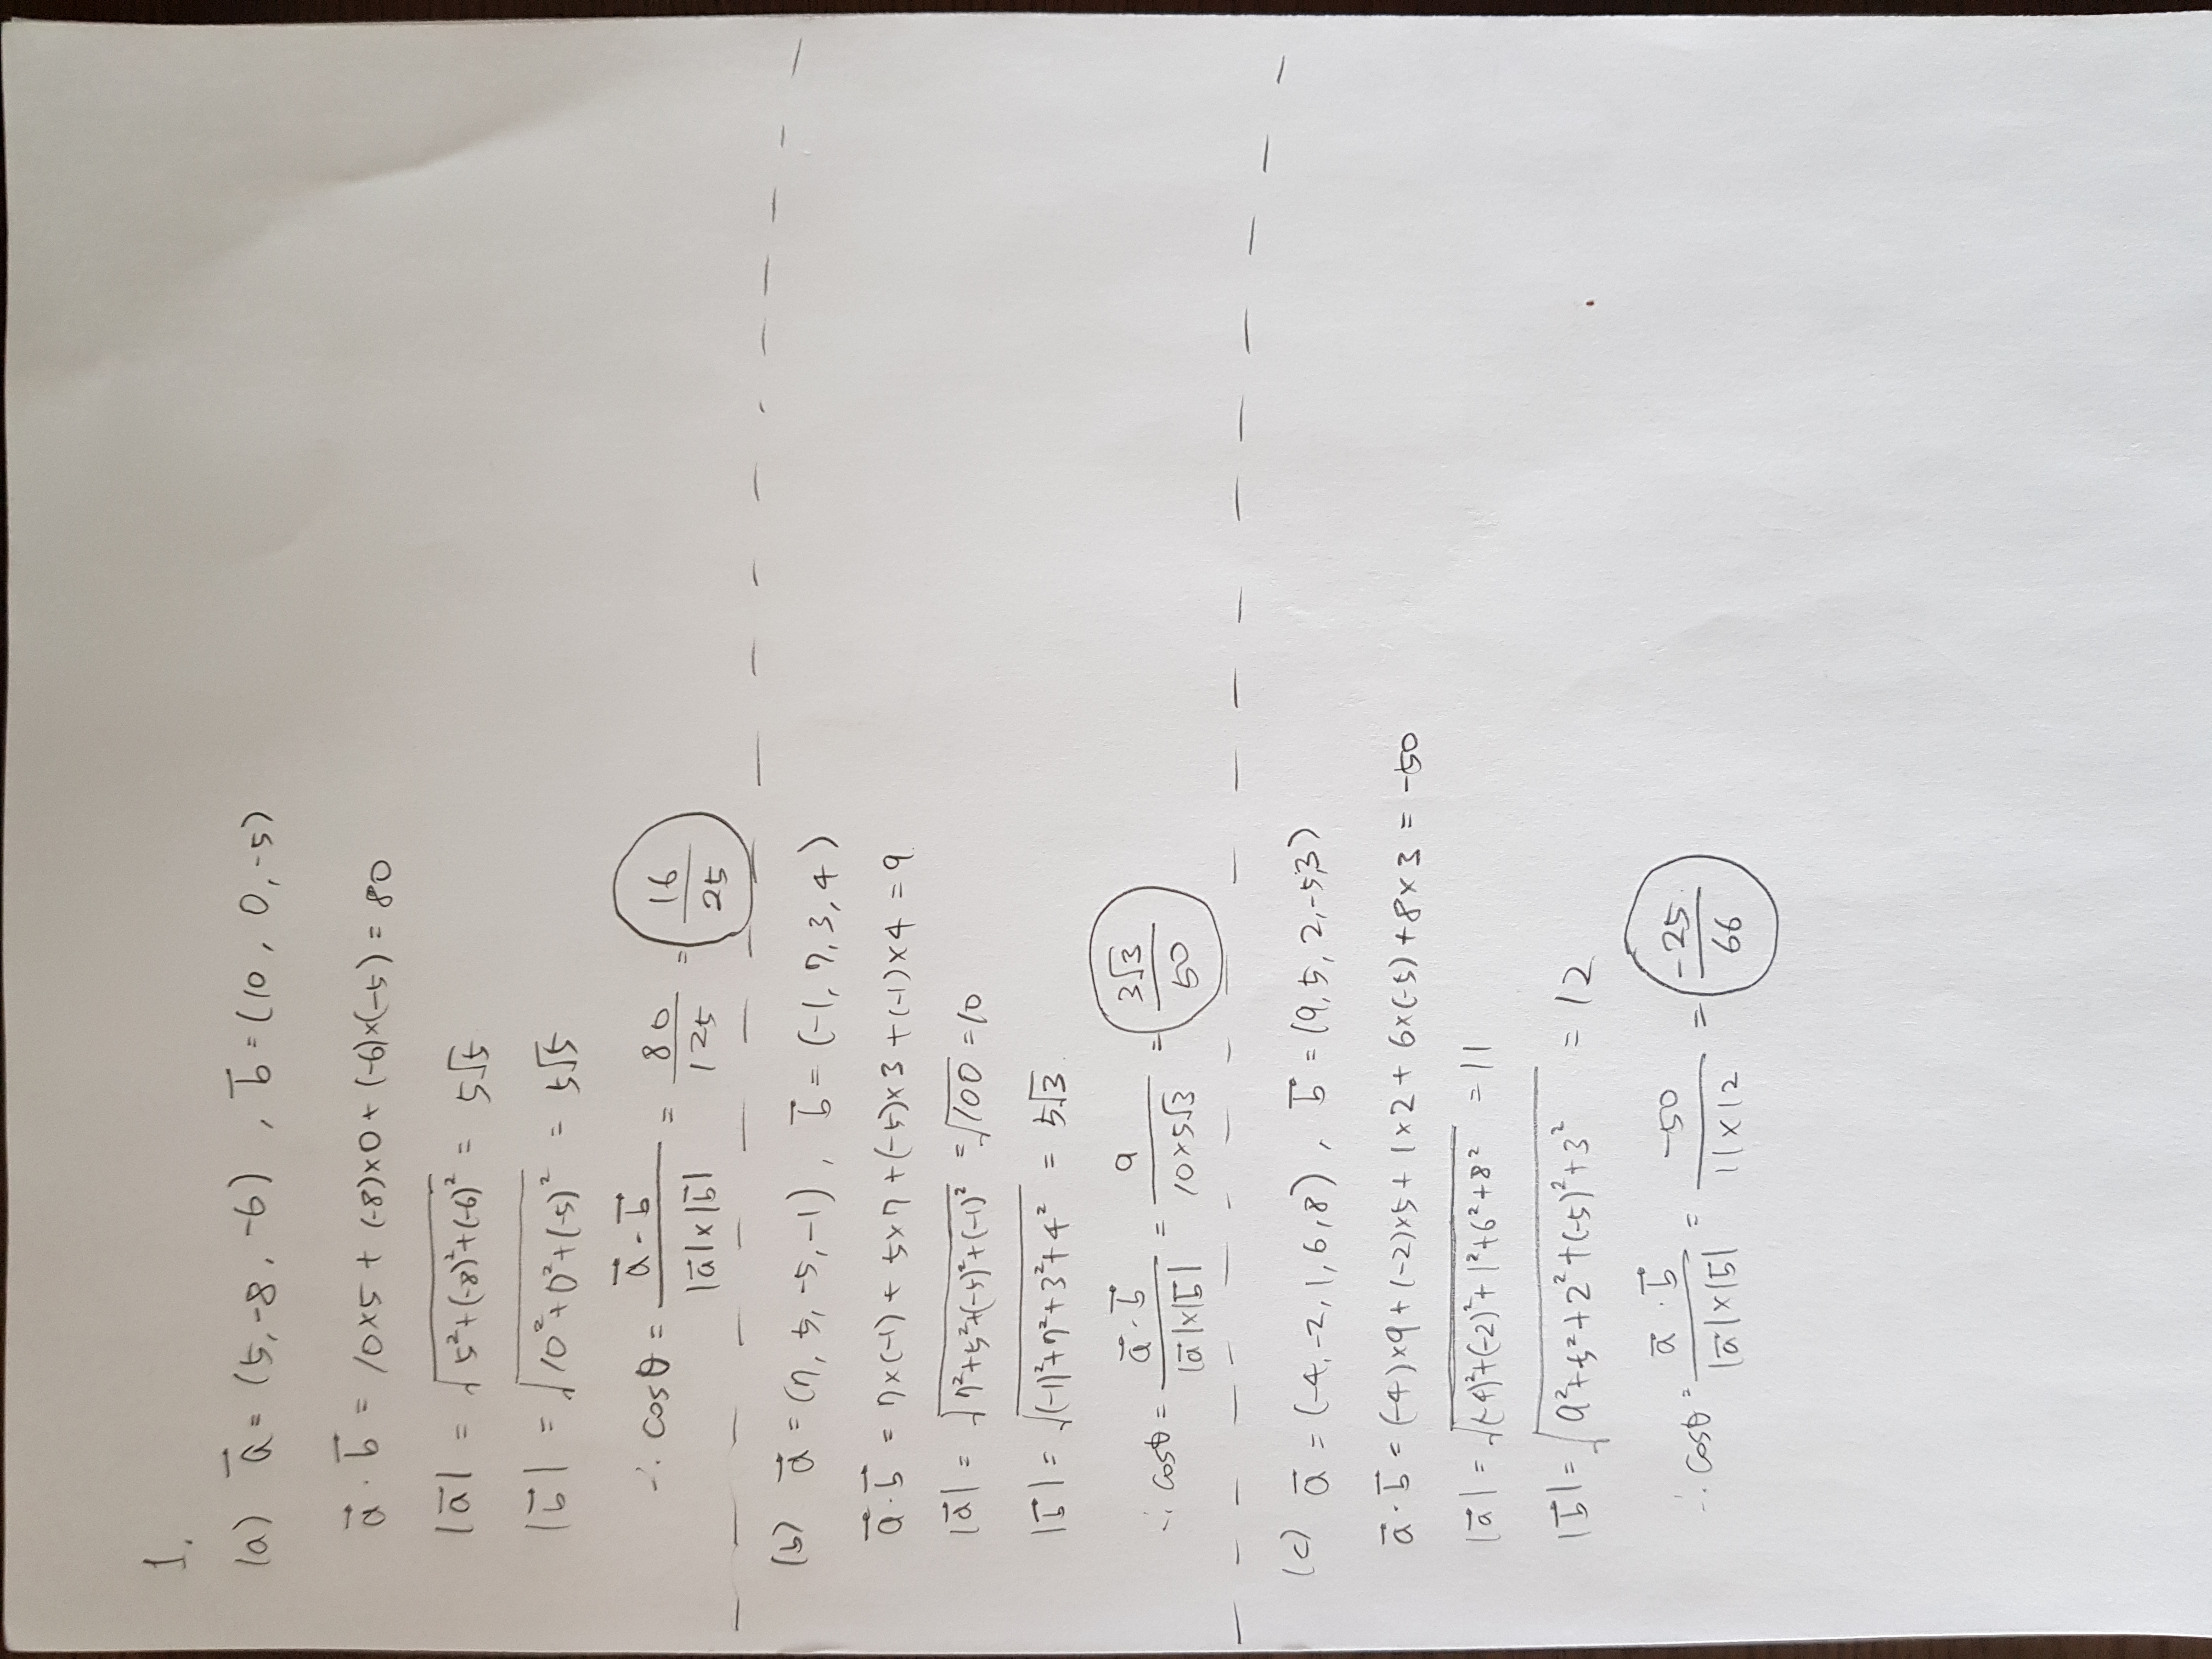 1.
(a) a⃗ = (5, -8, -6) , b⃗ = (10, 0, -5)
a⃗ · b⃗ = 10×5 + (-8)×0 + (-6)×(-5) = 80
|a⃗| = √(5²+(-8)²+(-6)²) = 5√5
|b⃗| = √(10²+0²+(-5)²) = 5√5
∴ cosθ = (a⃗ · b⃗)/(|a⃗|×|b⃗|) = 80/125 = 16/25
(b) a⃗ = (7, 5, -5, -1) , b⃗ = (-1, 7, 3, 4)
a⃗ · b⃗ = 7×(-1) + 5×7 + (-5)×3 + (-1)×4 = 9
|a⃗| = √(7²+5²+(-5)²+(-1)²) = √100 = 10
|b⃗| = √((-1)²+7²+3²+4²) = 5√3
∴ cosθ = (a⃗ · b⃗)/(|a⃗|×|b⃗|) = 9/(10×5√3) = 3√3/50
(c) a⃗ = (-4, -2, 1, 6, 8) , b⃗ = (9, 5, 2, -5, 3)
a⃗ · b⃗ = (-4)×9 + (-2)×5 + 1×2 + 6×(-5) + 8×3 = -50
|a⃗| = √((-4)²+(-2)²+1²+6²+8²) = 11
|b⃗| = √(9²+5²+2²+(-5)²+3²) = 12
∴ cosθ = (a⃗ · b⃗)/(|a⃗|×|b⃗|) = -50/(11×12) = -25/66